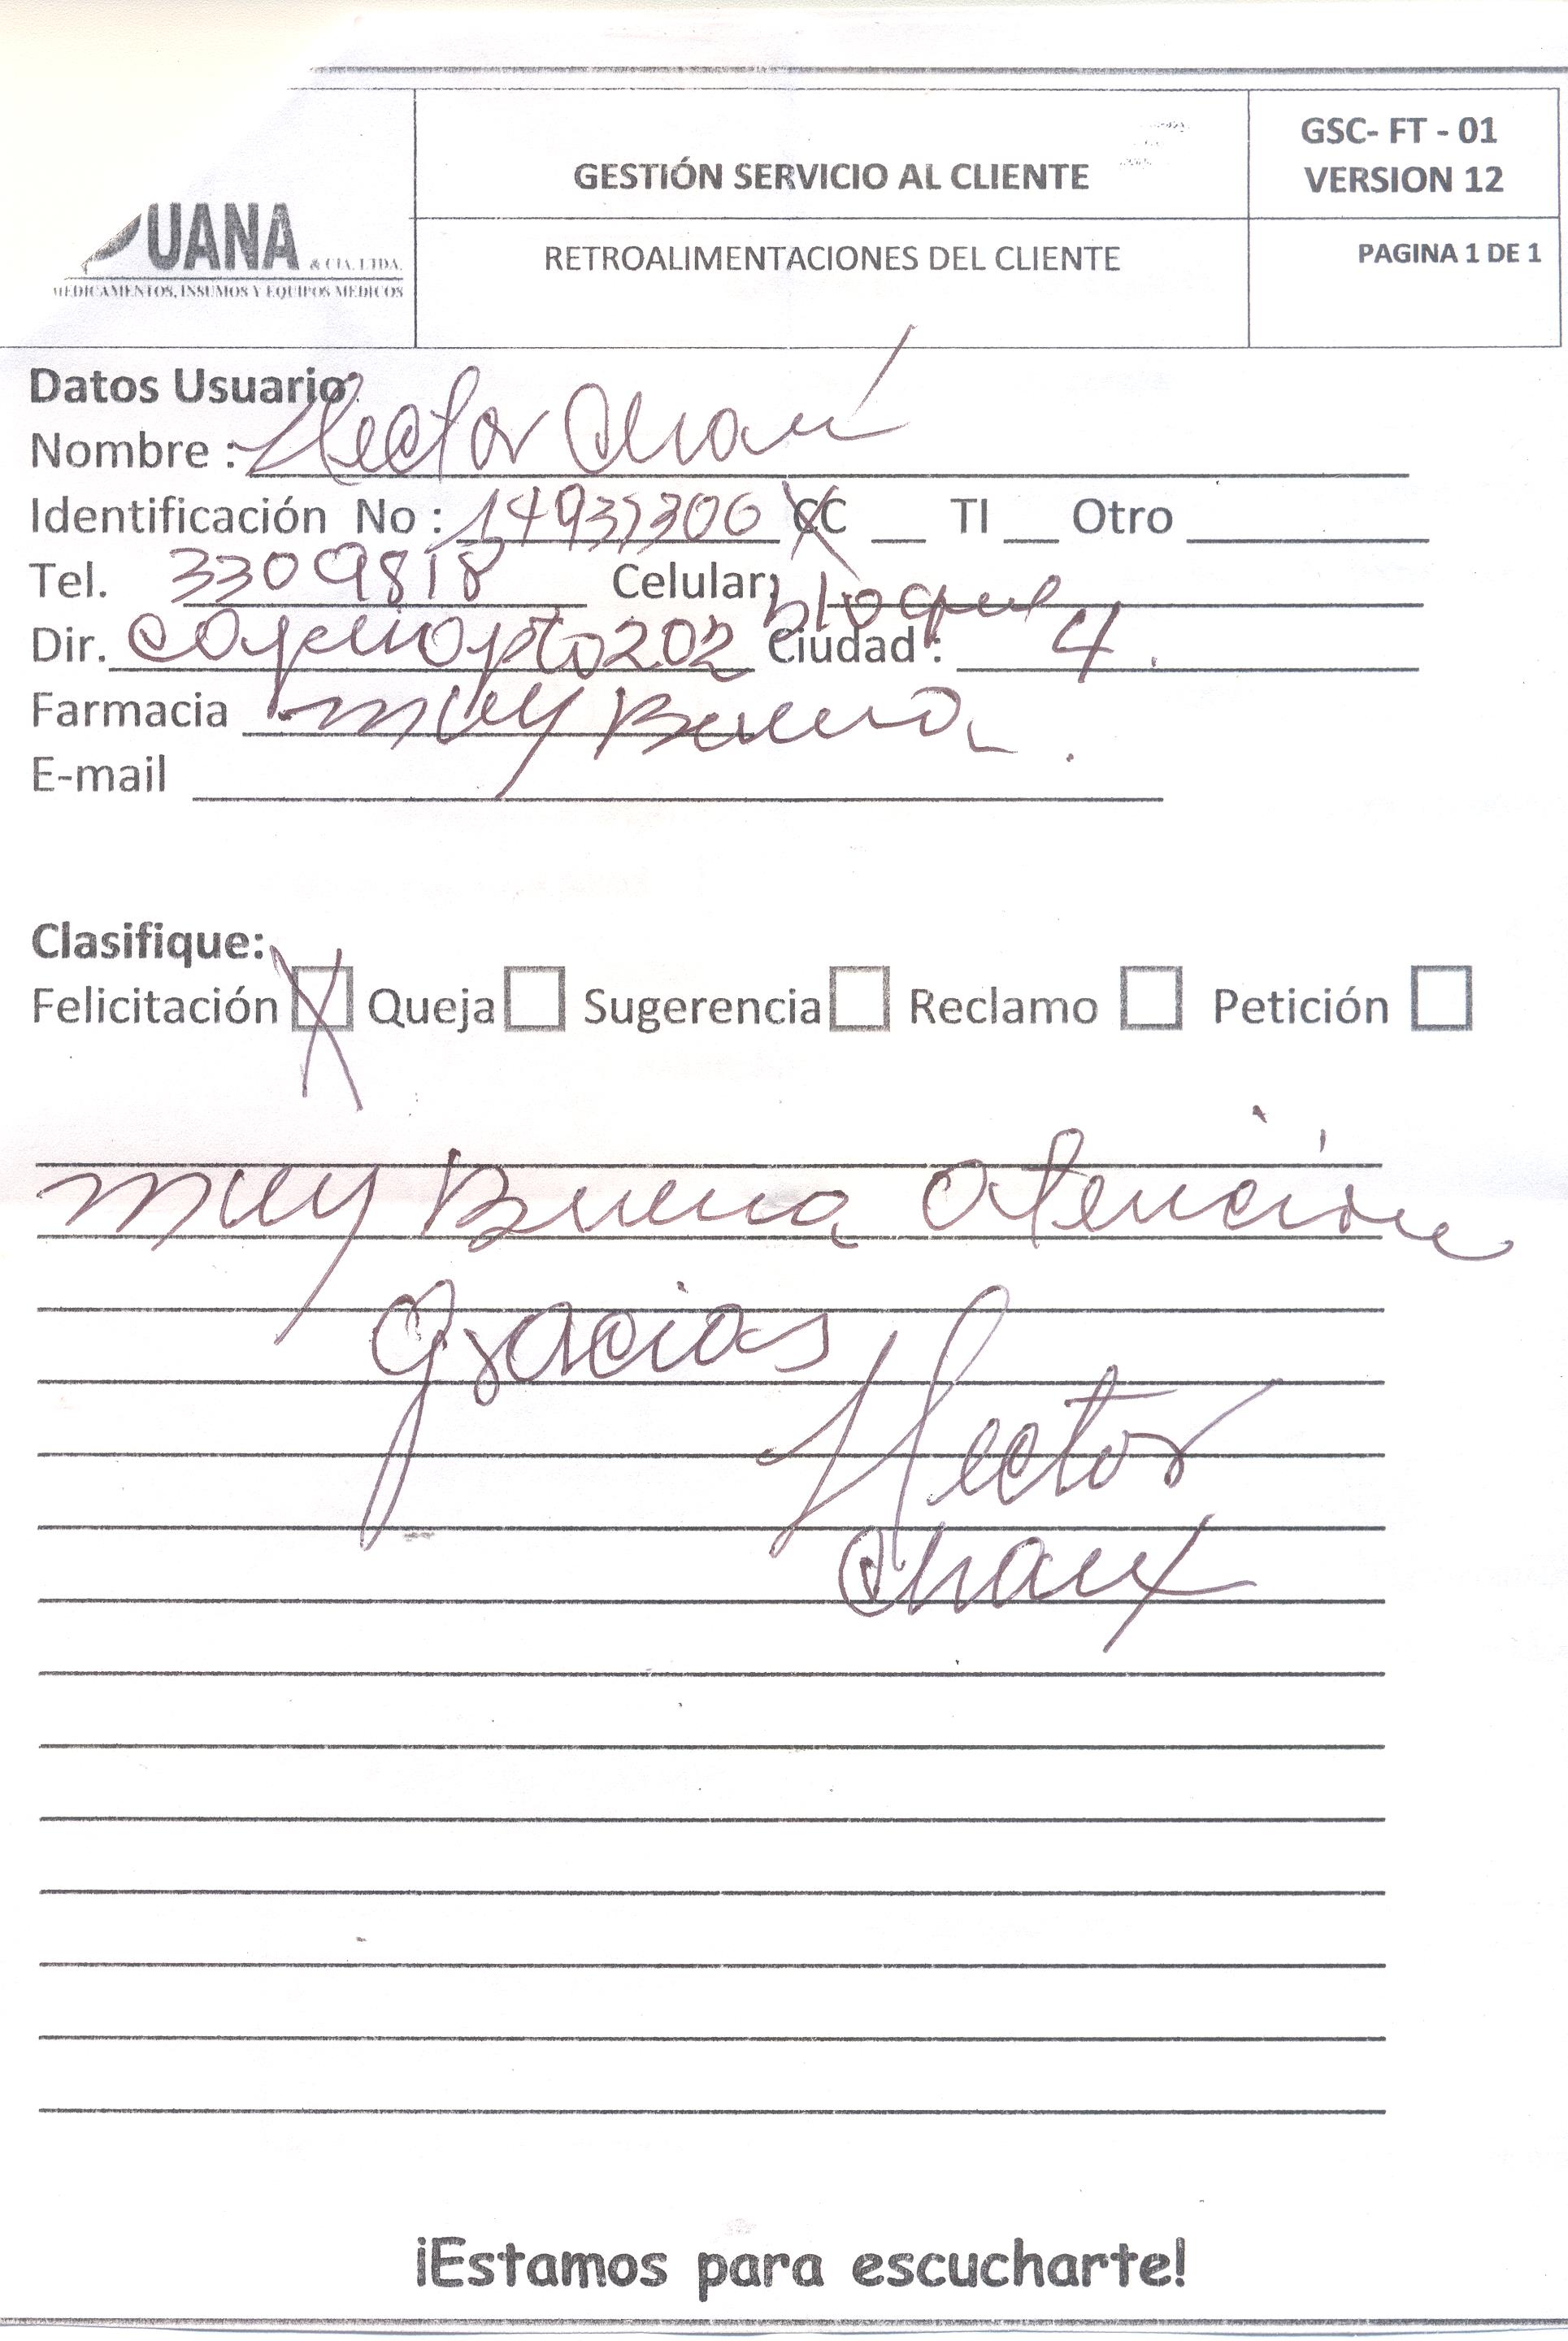 UANA & CIA. LTDA.
MEDICAMENTOS, INSUMOS Y EQUIPOS MEDICOS
GESTIÓN SERVICIO AL CLIENTE
RETROALIMENTACIONES DEL CLIENTE
GSC- FT - 01
VERSION 12
PAGINA 1 DE 1
Datos Usuario
Nombre : Hector Chaux
Identificación No : 14935306 X CC __ TI __ Otro
Tel. 3309818 Celular:
Dir. apto 202 Ciudad : bloque 4.
Farmacia muy Buena.
E-mail
Clasifique:
Felicitación X Queja Sugerencia Reclamo Petición
muy Buena atencion
Gracias
Hector
Chaux
¡Estamos para escucharte!